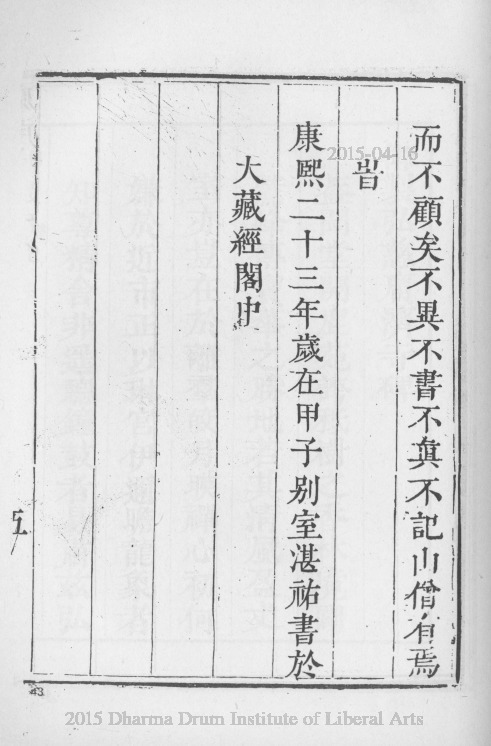 而不顧矣不異不書不真不記山僧有焉
旹
康熙二十三年歲在甲子别室湛祐書於
大藏經閣中
五
2015-04-16
43
2015 Dharma Drum Institute of Liberal Arts